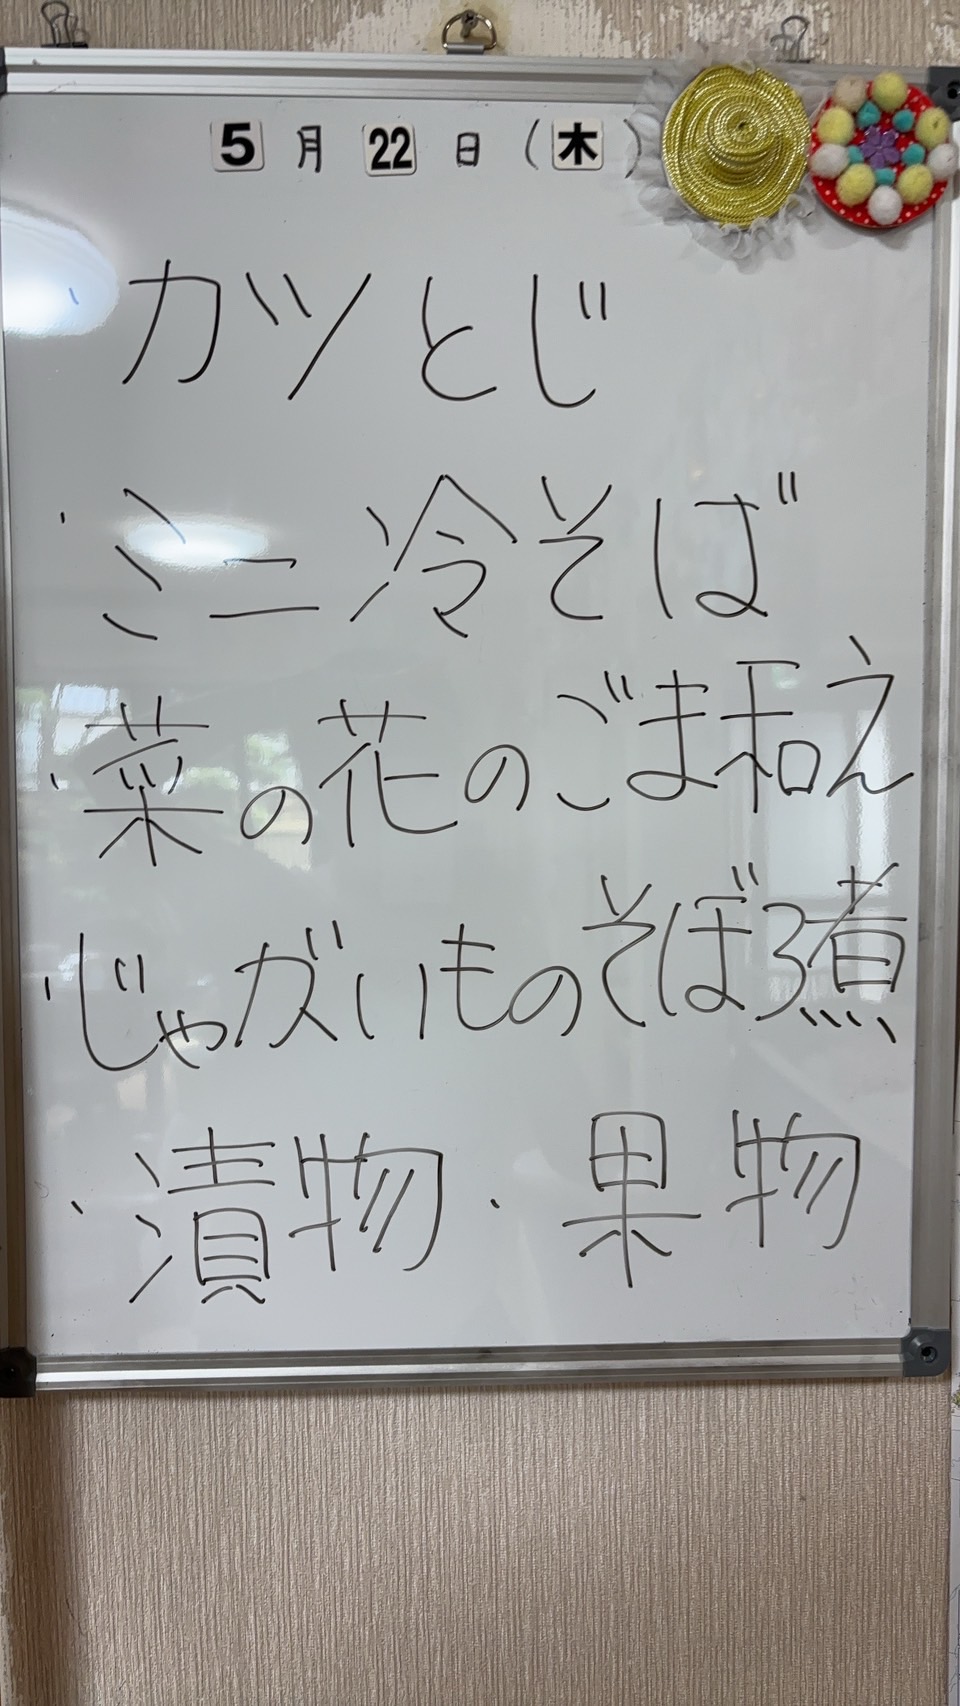 5月22日(木)
カツとじ
・ミニ冷そば
・菜の花のごま和え
・じゃがいものそぼろ煮
・漬物・果物